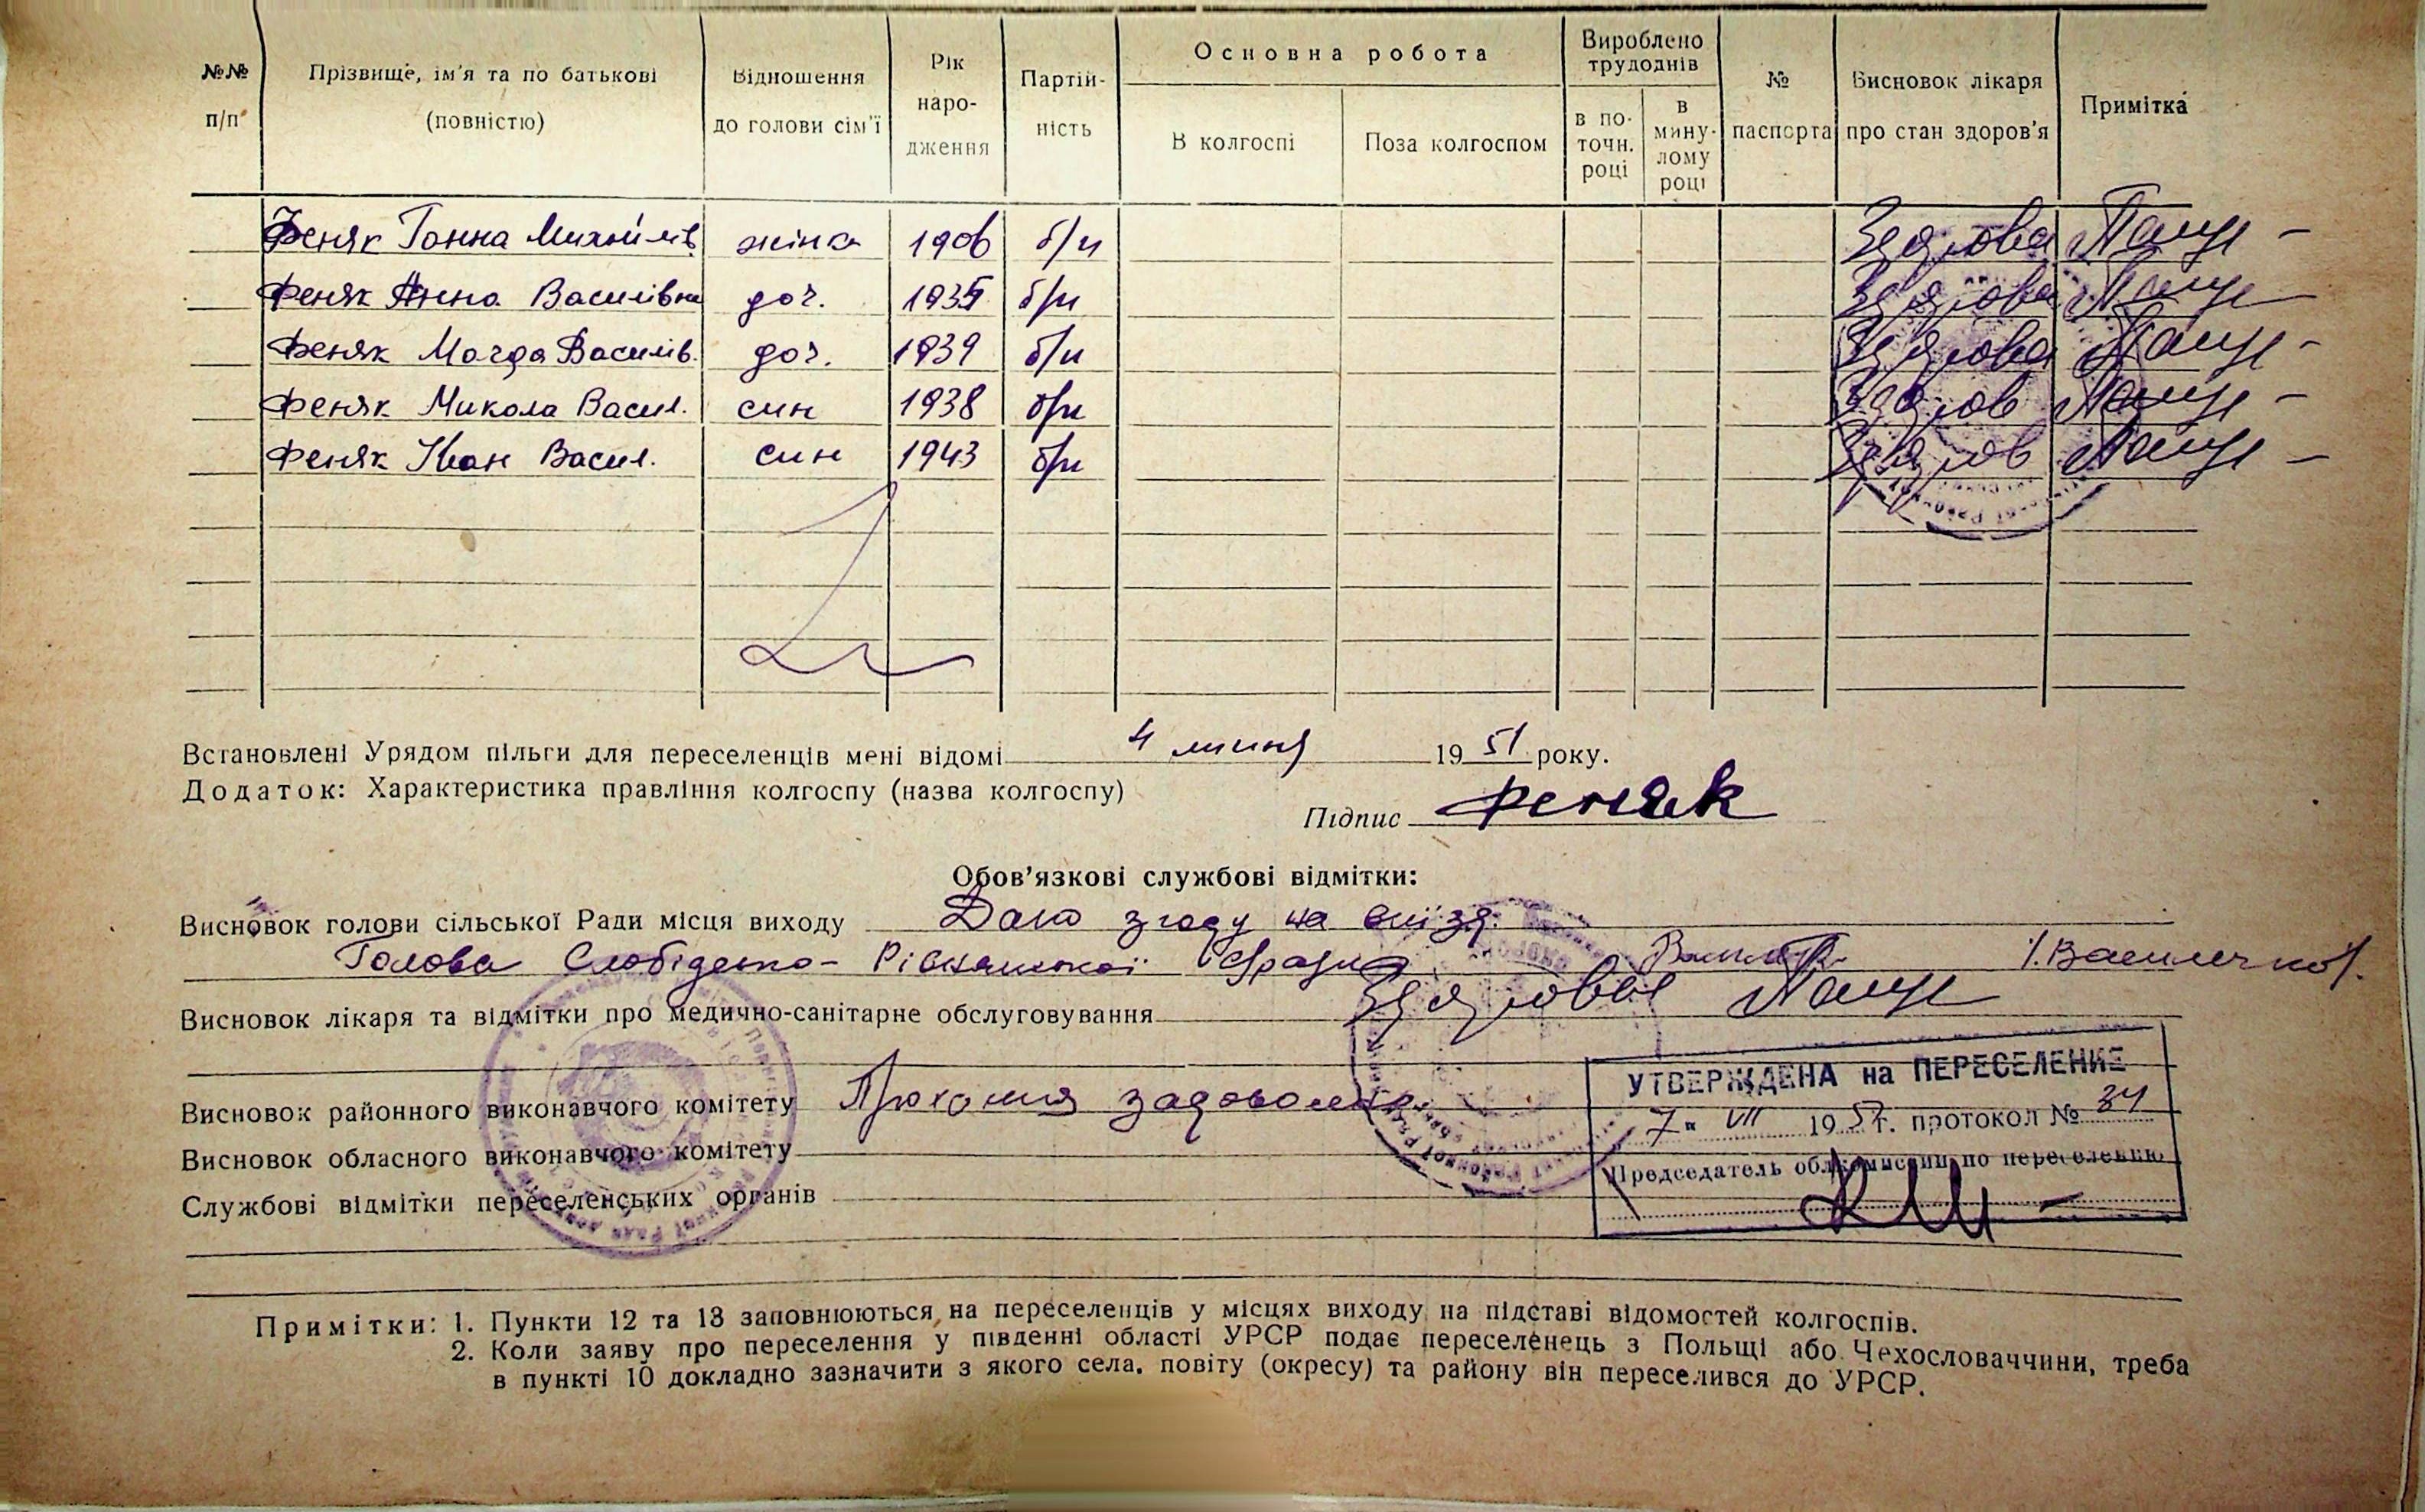 №№ п/п
Прізвище, ім'я та по батькові (повністю)
Відношення до голови сім'ї
Рік народження
Партійність
Основна робота
В колгоспі
Поза колгоспом
Вироблено трудоднів
в поточн. році
в минулому році
№ паспорта
Висновок лікаря про стан здоров'я
Примітка
Феняк Ганна Михайлів. жінка 1906 б/п Здорова
Феняк Анна Василівна доч. 1935 б/п Здорова
Феняк Магда Василів. доч. 1939 б/п Здорова
Феняк Микола Васил. син 1938 б/п Здоров
Феняк Іван Васил. син 1943 б/п Здоров
Встановлені Урядом пільги для переселенців мені відомі 4 липня 1951 року.
Додаток: Характеристика правління колгоспу (назва колгоспу)
Підпис Феняк
Обов'язкові службові відмітки:
Висновок голови сільської Ради місця виходу Даю згоду на виїзд.
Голова
Висновок лікаря та відмітки про медично-санітарне обслуговування Здорові
Висновок районного виконавчого комітету Прохання
Висновок обласного виконавчого комітету
Службові відмітки переселенських органів
УТВЕРЖДЕНА на ПЕРЕСЕЛЕНИЕ
7 " VII 1951 г. протокол № 34
Председатель облкомиссии по переселению
Примітки: 1. Пункти 12 та 13 заповнюються на переселенців у місцях виходу на підставі відомостей колгоспів.
2. Коли заяву про переселення у південні області УРСР подає переселенець з Польщі або Чехословаччини, треба
в пункті 10 докладно зазначити з якого села, повіту (окресу) та району він переселився до УРСР.